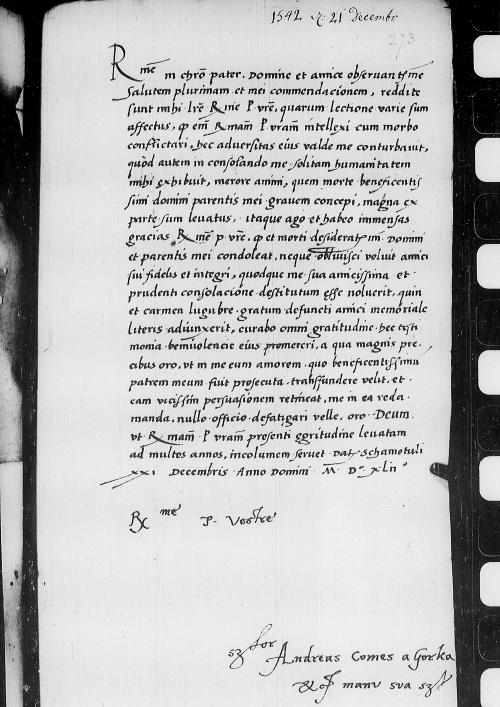 1542 21 Decembr
273
Rme in chro pater. Domine et amice observantisme
salutem plurimam et mei commendacionem, reddite
sunt mihi lre Rme P. vre, quarum lectione varie sum
affectus, q em Rmam P. vram intellexi cum morbo
conflictari, hec adversitas eius valde me conturbavit,
quòd autem in consolando me solitam humanitatem
mihi exhibuit, merore animi, quem morte beneficentis
simi domini parentis mei gravem concepi, magna ex
parte sum levatus, itaque ago et habeo immensas
gracias Rme p. vre, q et morti desideratmi Domini
et parentis mei condoleat, neque oblivisci voluit amici
sui fidelis et integri, quodque me sua amicissima et
prudenti consolacione destitutum esse noluerit, quin
et carmen lugubre gratum defuncti amici memoriale
literis adiunxerit, curabo omni gratitudine hec testi
monia benivolencie eius promereri, a qua magnis pre,
cibus oro, vt in me eum amorem quo beneficentissimu
patrem meum fuit prosecuta transfundere velit, et
eam vicissim persuasionem retineat, me in ea reda,
manda, nullo officio defatigari velle, oro Deum
vt Rmam P. vram presenti egritudine levatam
ad multos annos, incolumem servet Dat Schamotuli
xxi Decembris Anno Domini M. Do. xLiio
Rx me P. Vestre
Andreas Comes a Gorka
manu sua